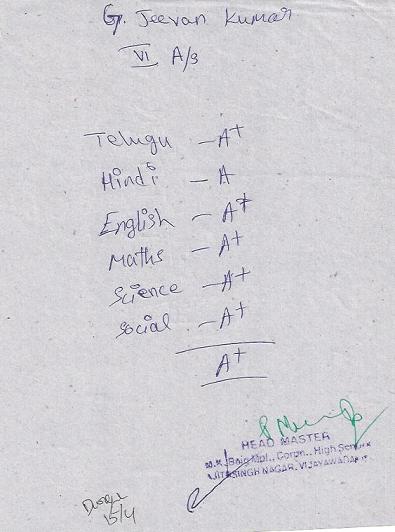 G. Jeevan Kumar
VI A/s
Telugu - A+
Hindi - A
English - A+
Maths - A+
Science - A+
Social - A+
A+
HEAD MASTER
M.K. Baig Mpl., Corpn., High School
AJITSINGH NAGAR, VIJAYAWADA
15/4